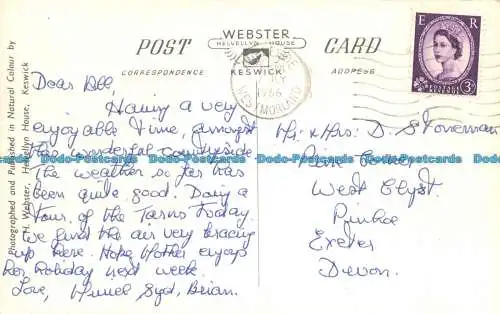 POST
WEBSTER
HELVELLYN HOUSE
KESWICK
CARD
CORRESPONDENCE
ADDRESS
E R
POSTAGE REVENUE
3D
1966
WESTMORLAND
Photographed and Published in Natural Colour by
H. Webster, Helvellyn House, Keswick
Dear All,
Having a very
enjoyable time, amongst
this wonderful countryside
The weather so far has
been quite good. Doing a
Tour of the Tarns today.
We find the air very bracing
up here. Hope Mother enjoys
her holiday next week.
Love, Syd, Brian.
Mr & Mrs: D. Stoneman
West Clyst
Pinhoe
Exeter
Devon.
Dodo-Postcards Dodo-Postcards Dodo-Postcards Dodo-Postcards Dodo-Postcards